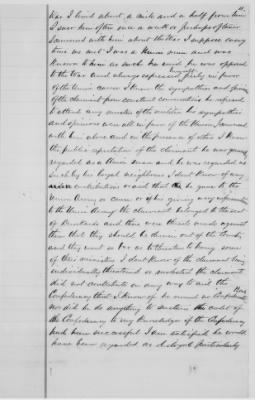 War I lived about a mile and a half from him
I saw him often once a week or perhaps oftener
I conversed with him about the War I suppose every
time we met I was a Union man and was
known to him as such he said he was opposed
to the War and always expressed himself freely in favor
of the Union cause I knew the sympathies and
of the claimant from constant conversation he refused
to attend any of the his sympathies
and were all in favor of the
with him alone and in the presence of others I know
the public reputation of the claimant he was
regarded as a Union man and he was regarded as
such by his loyal neighbours I don't know of any
contributions or aid that he gave to the
Union Army or cause or of his giving any information
to the Union Army the claimant belonged to the sect
of and there was threats made against
them that they should be driven out of the County
and they went so far as to threaten to hang some
of their ministers I don't know of the claimant being
individually threatened or molested the claimant
did not contribute in any way to aid the
Confederacy that I know of he owned no Confederate Bonds
nor did he do anything to sustain the credit of
the Confederacy to my knowledge if the Confederacy
had been successful I am satisfied he would
have been regarded as a loyal